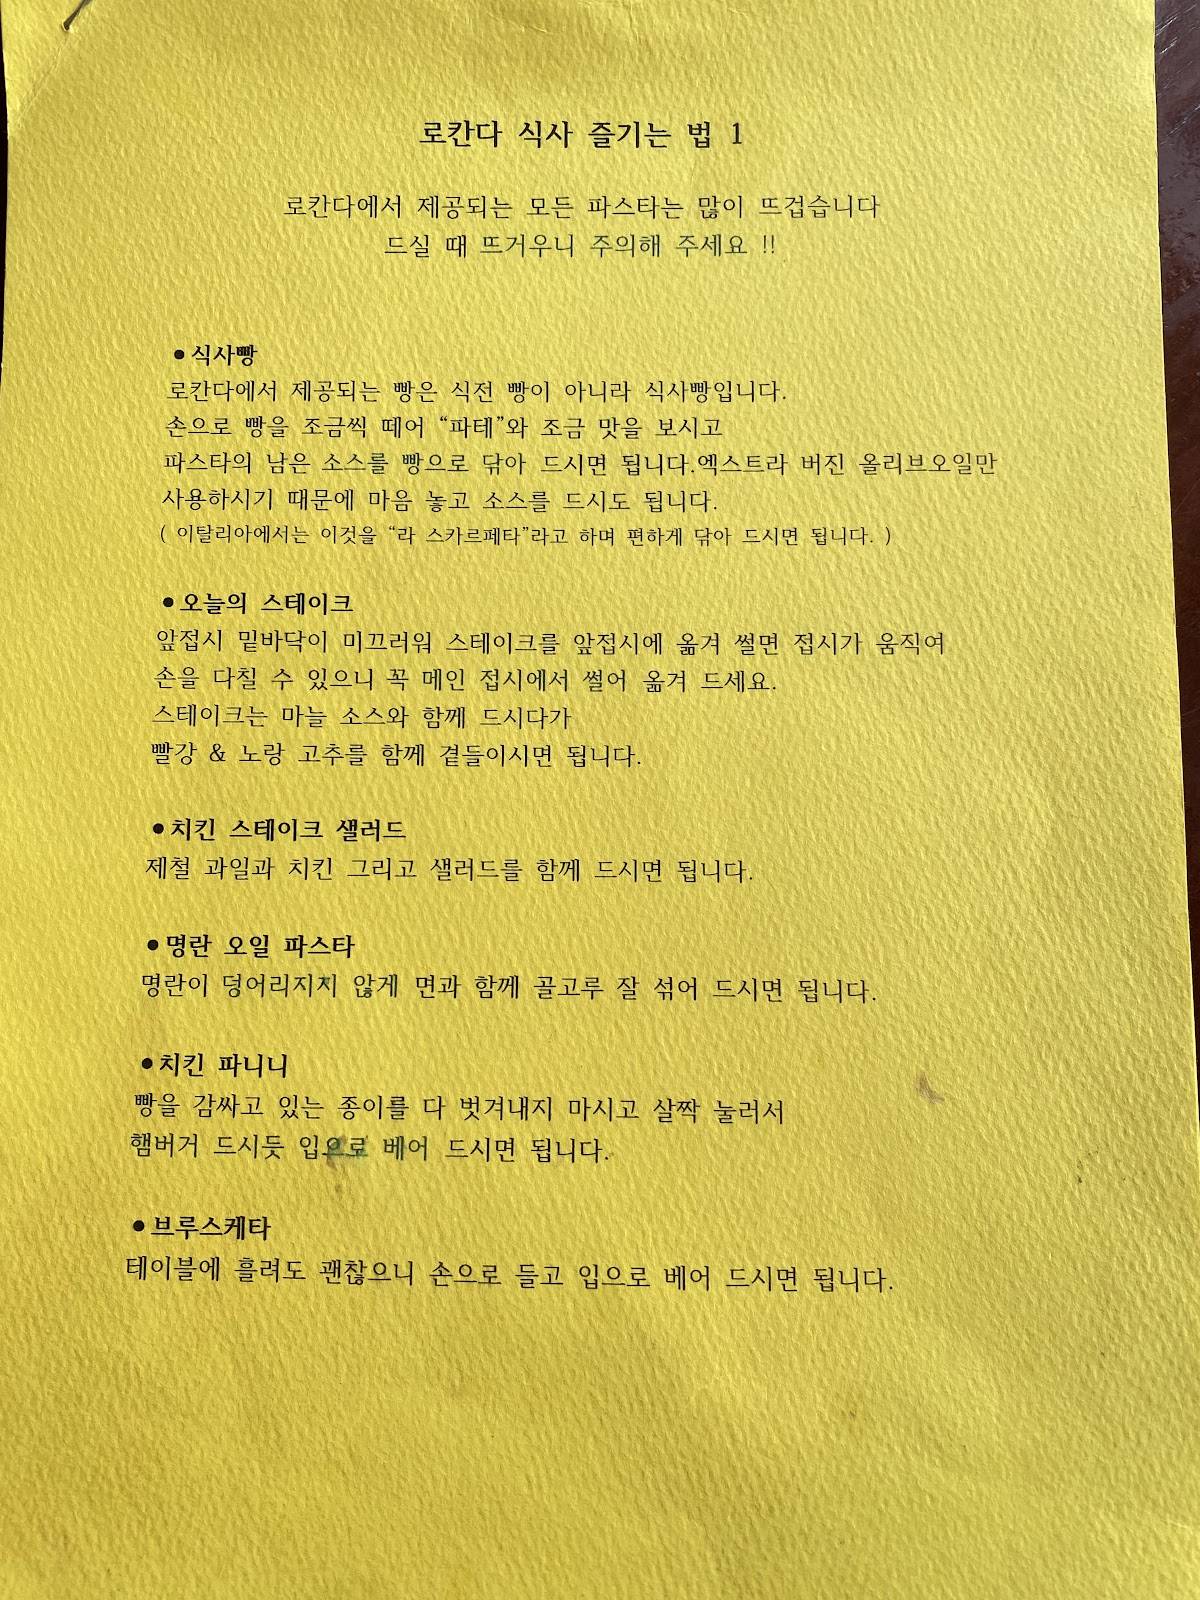 로칸다 식사 즐기는 법 1
로칸다에서 제공되는 모든 파스타는 많이 뜨겁습니다
드실 때 뜨거우니 주의해 주세요 !!
●식사빵
로칸다에서 제공되는 빵은 식전 빵이 아니라 식사빵입니다.
손으로 빵을 조금씩 떼어 “파테”와 조금 맛을 보시고
파스타의 남은 소스를 빵으로 닦아 드시면 됩니다.엑스트라 버진 올리브오일만
사용하시기 때문에 마음 놓고 소스를 드시도 됩니다.
( 이탈리아에서는 이것을 “라 스카르페타”라고 하며 편하게 닦아 드시면 됩니다. )
●오늘의 스테이크
앞접시 밑바닥이 미끄러워 스테이크를 앞접시에 옮겨 썰면 접시가 움직여
손을 다칠 수 있으니 꼭 메인 접시에서 썰어 옮겨 드세요.
스테이크는 마늘 소스와 함께 드시다가
빨강 & 노랑 고추를 함께 곁들이시면 됩니다.
●치킨 스테이크 샐러드
제철 과일과 치킨 그리고 샐러드를 함께 드시면 됩니다.
●명란 오일 파스타
명란이 덩어리지지 않게 면과 함께 골고루 잘 섞어 드시면 됩니다.
●치킨 파니니
빵을 감싸고 있는 종이를 다 벗겨내지 마시고 살짝 눌러서
햄버거 드시듯 입으로 베어 드시면 됩니다.
●브루스케타
테이블에 흘려도 괜찮으니 손으로 들고 입으로 베어 드시면 됩니다.